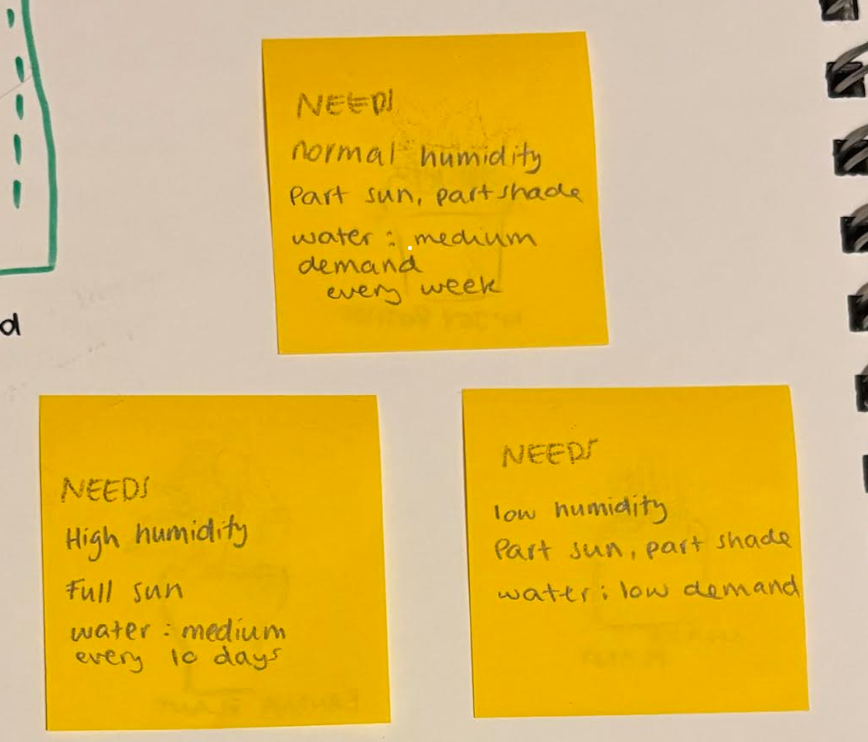 NEEDS
normal humidity
Part sun, part shade
water : medium
demand
every week
d
NEEDS
High humidity
Full sun
water : medium
every 10 days
NEEDS
low humidity
Part sun, part shade
water : low demand